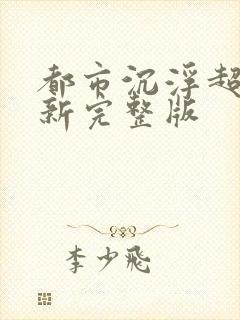 都市沉浮超
新完整版
李少飛